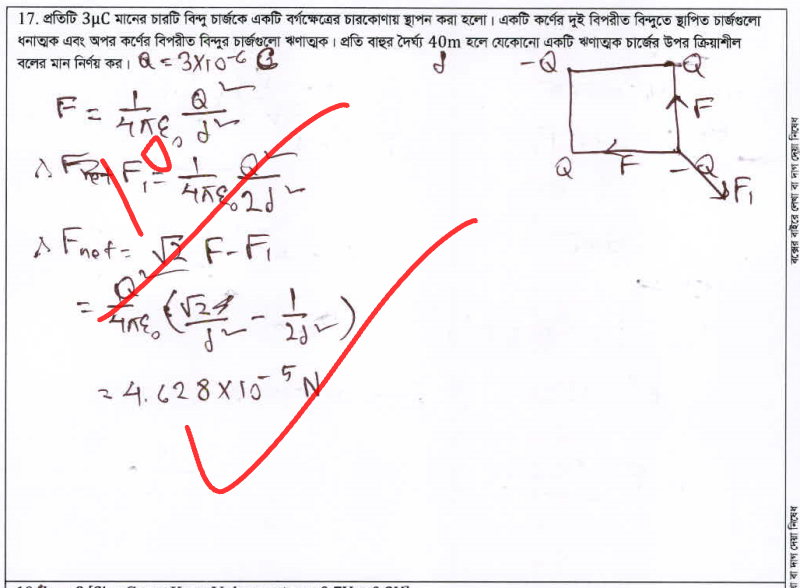 17. প্রতিটি 3μC মানের চারটি বিন্দু চার্জকে একটি বর্গক্ষেত্রের চারকোণায় স্থাপন করা হলো। একটি কর্ণের দুই বিপরীত বিন্দুতে স্থাপিত চার্জগুলো
ধনাত্মক এবং অপর কর্ণের বিপরীত বিন্দুর চার্জগুলো ঋণাত্মক। প্রতি বাহুর দৈর্ঘ্য 40m হলে যেকোনো একটি ঋণাত্মক চার্জের উপর ক্রিয়াশীল
বলের মান নির্ণয় কর। Q = 3×10⁻⁶ C
d -Q Q
F = 1/4πε₀ Q²/d²
F
∴ F₁ = 1/4πε₀ Q²/2d²
Q F -Q
F₁
∴ Fnet = √2 F - F₁
= Q²/4πε₀ (√2/d² - 1/2d²)
= 4.628×10⁻⁵ N
10
বক্সের বাইরে লেখা বা দাগ দেয়া নিষেধ
বা দাগ দেয়া নিষেধ